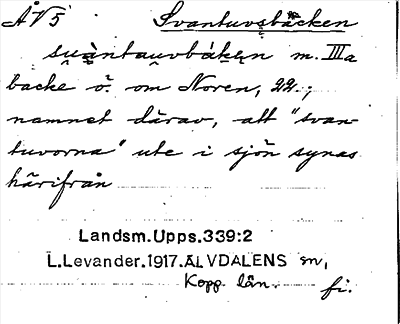 ÅV5 Svantuvsbäcken
m. IIIa
backe ö. om Noren, 22.;
namnet därav, att "svan-
tuvorna" ute i sjön synas
härifrån
Landsm.Upps.339:2
L.Levander.1917.ÄLVDALENS sn,
Kopp. län.
fi.